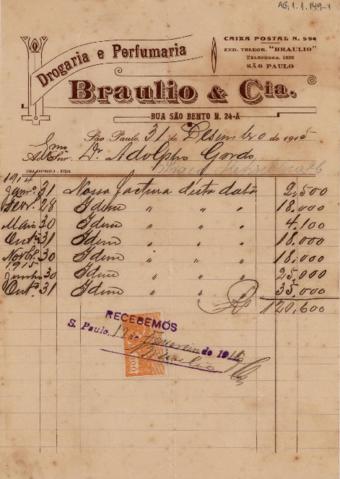 AG.1.1.149-1
Drogaria e Perfumaria
CAIXA POSTAL N. 594
END. TELEGR. "BRAULIO"
TELEPHONE, 1639
SÃO PAULO
Braulio & Cia.
RUA SÃO BENTO N. 24-A
São Paulo, 31 de Dezembro de 1915
Illmo. Snr. Dr. Adolpho Gordo
1914
Janro 31 Nossa factura desta data 2,500
Fevro 28 Idem " " 18,000
Maio 30 Idem " " 4,100
Outro 31 Idem " " 18,000
Novbro 30 Idem " " 18,000
1915
Junho 30 Idem " " 25,000
Outro 31 Idem " " 35,000
Rs 120,600
RECEBEMOS
S. Paulo, de de 191
Braulio